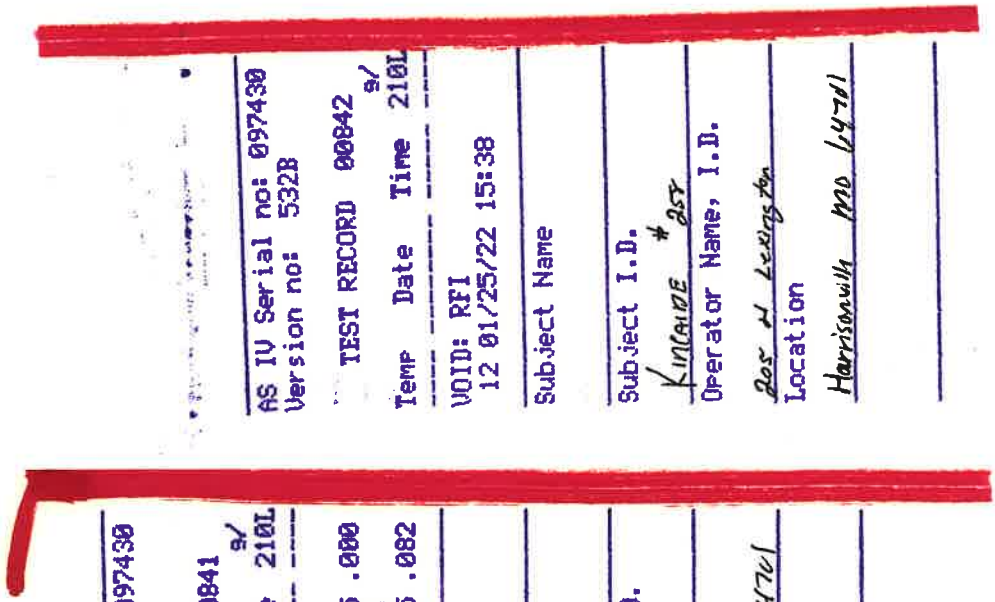 AS IV Serial no: 097430
Version no: 532B
TEST RECORD 00842
g/
Temp Date Time 210L
VOID: RFI
12 01/25/22 15:38
Subject Name
Subject I.D.
KINCAIDE # 258
Operator Name, I.D.
205 N Lexington
Location
Harrisonville MO 64701
097430
0841
g/
210L
.000
.082
4701